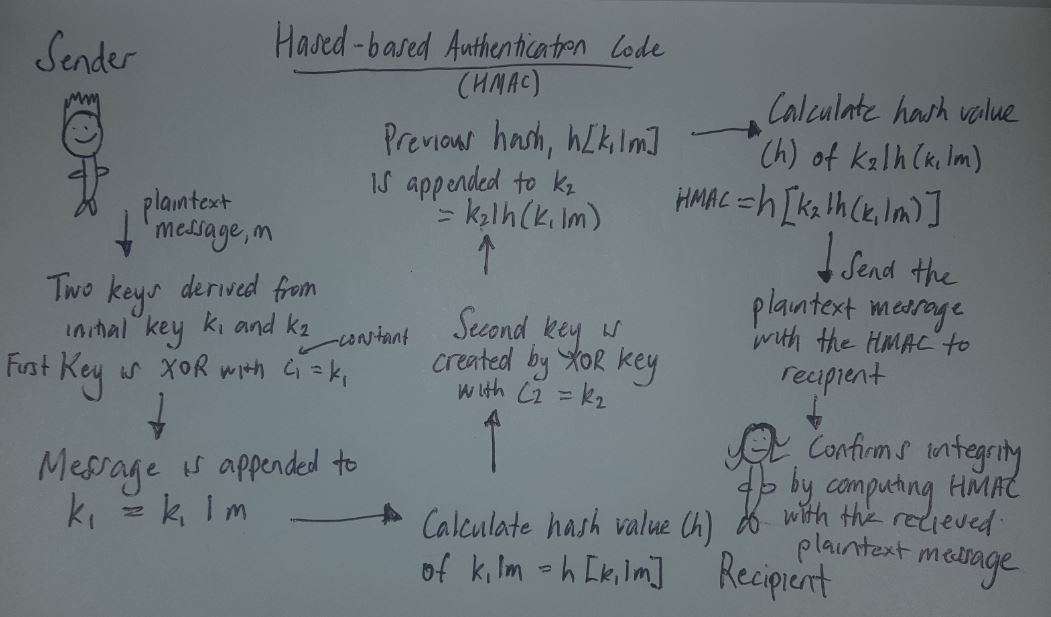 Sender
Hased-based Authentication Code
(HMAC)
plaintext
message, m
Two keys derived from
initial key k₁ and k₂
constant
First Key is XOR with C₁ = k₁
Message is appended to
k₁ = k₁ | m
Calculate hash value (h)
of k₁|m = h [k₁|m]
Second key is
created by XOR key
with C2 = k₂
Previous hash, h[k₁|m]
is appended to k₂
= k₂|h(k₁|m)
Calculate hash value
(h) of k₂|h(k₁|m)
HMAC = h [k₂|h(k₁|m)]
Send the
plaintext message
with the HMAC to
recipient
Confirms integrity
by computing HMAC
with the recieved
plaintext message
Recipient